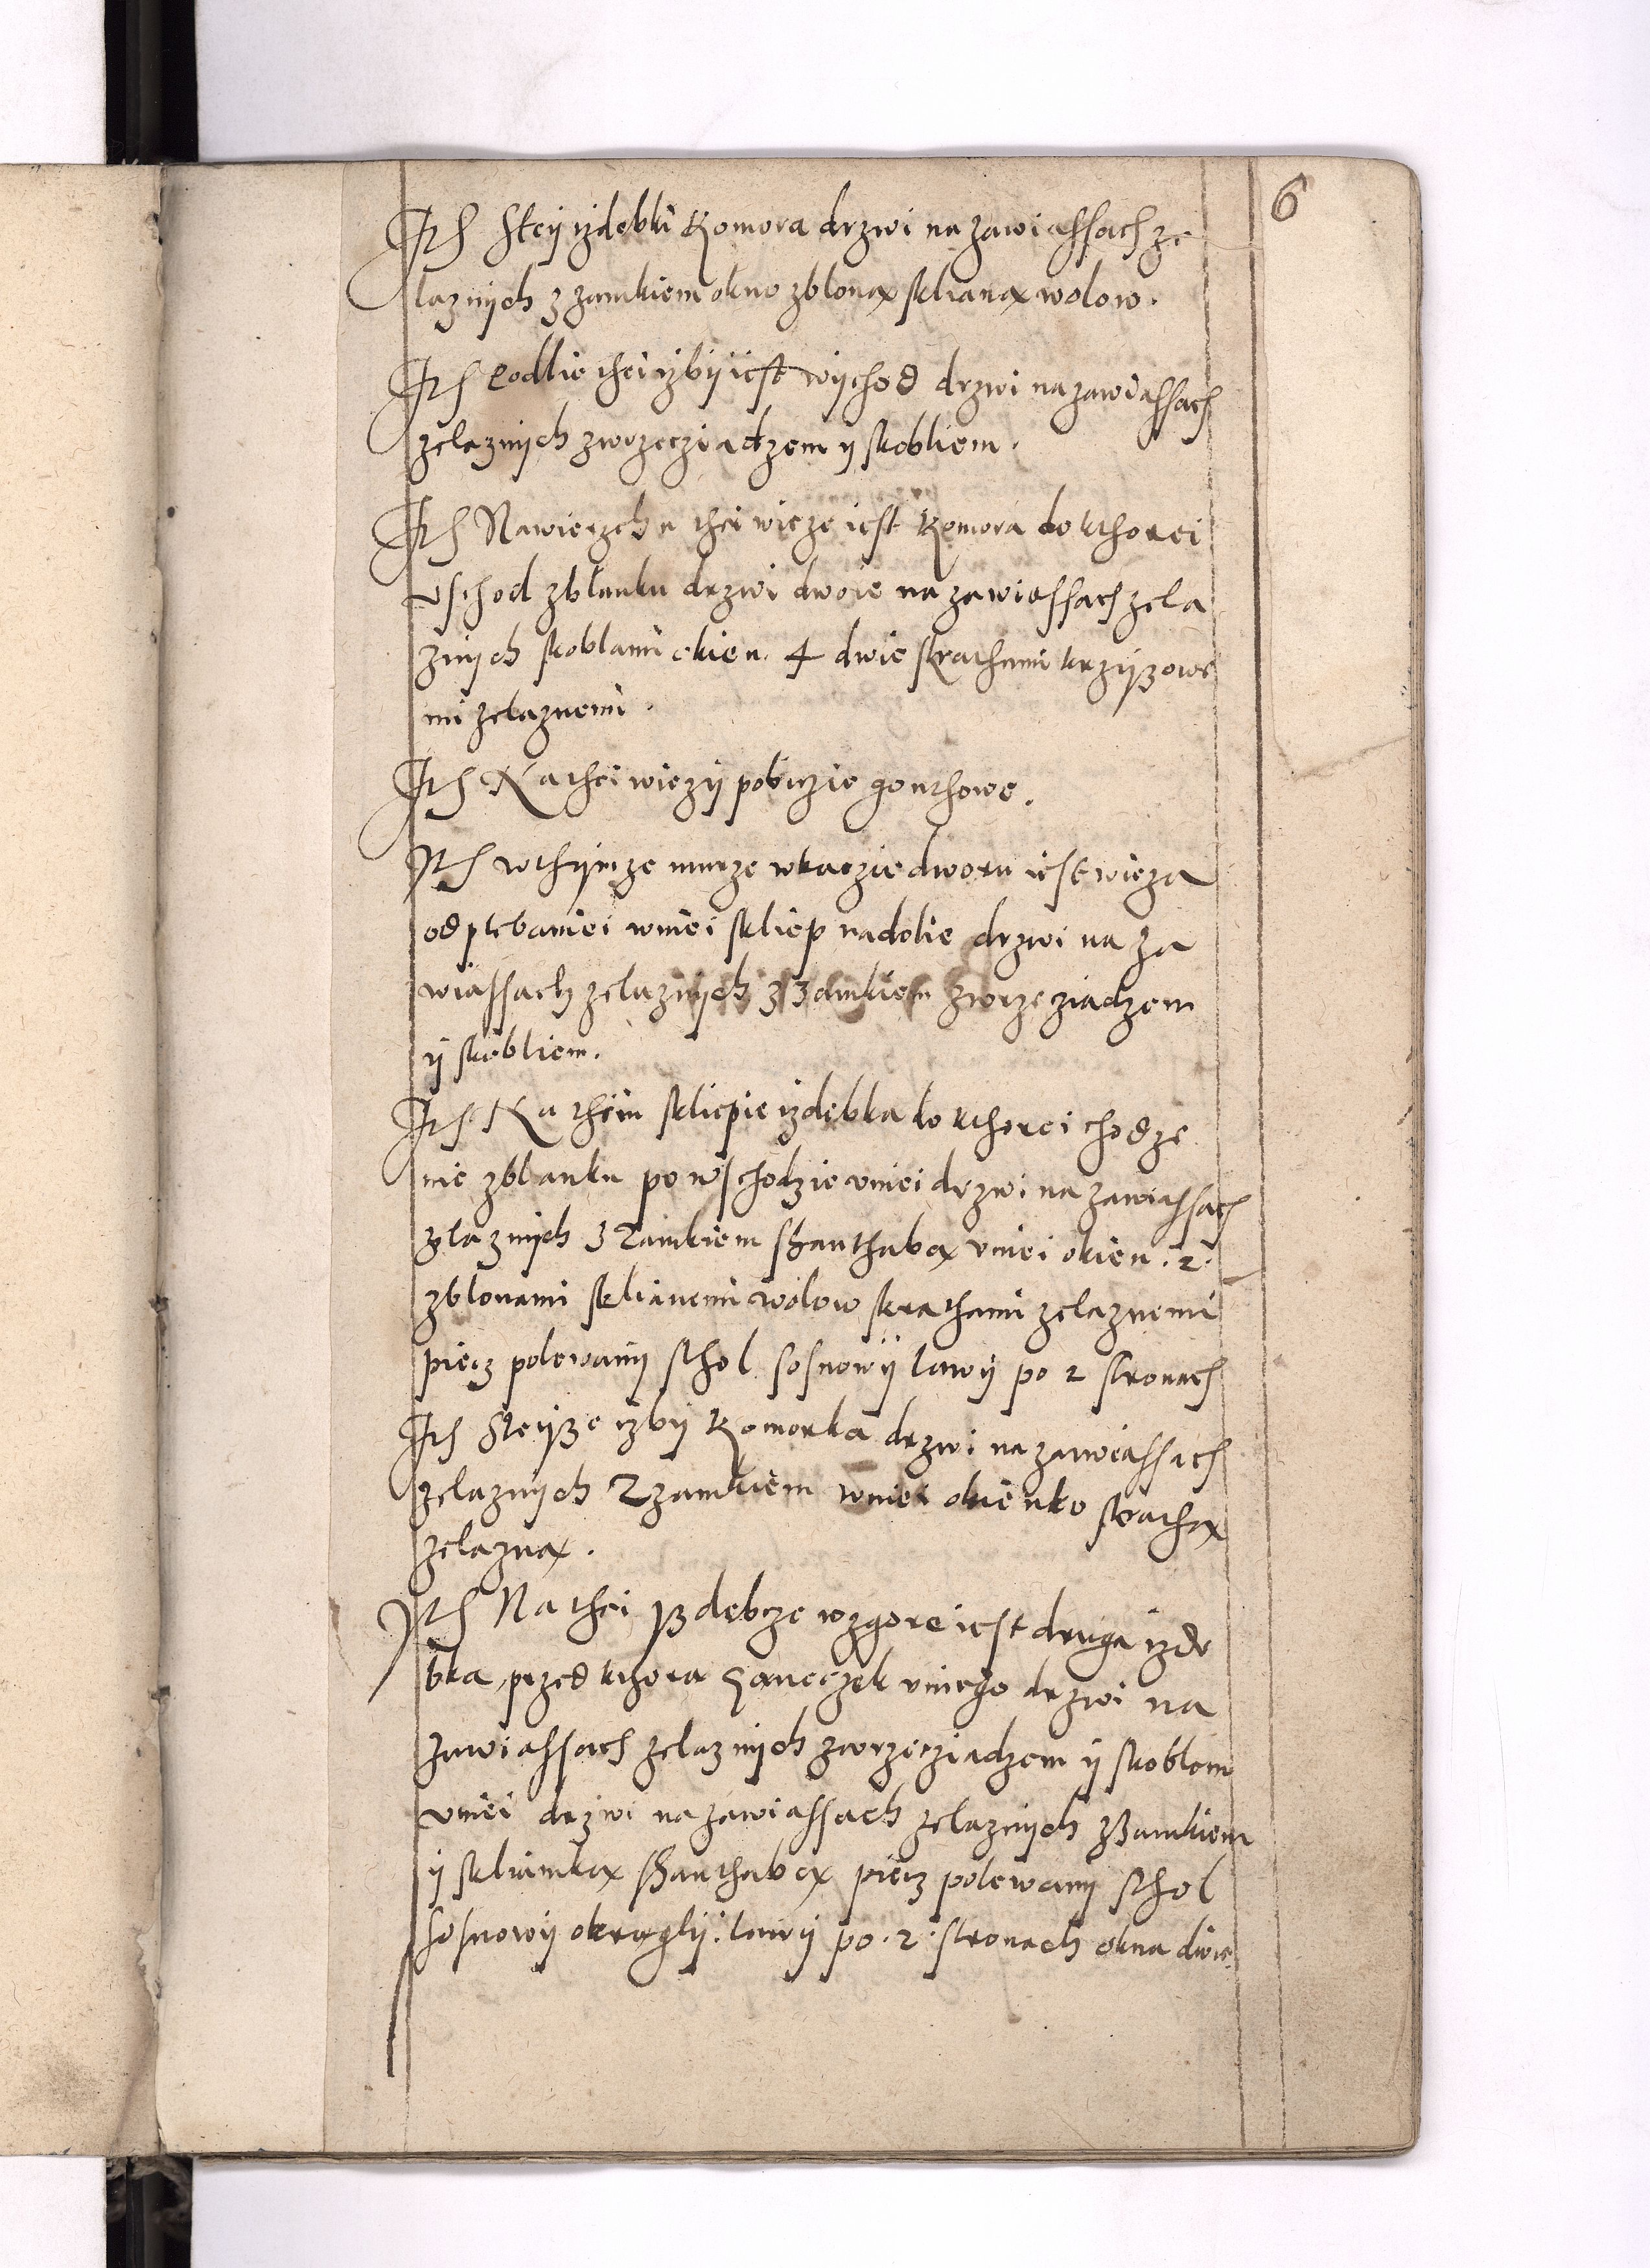 6
Ith Stey izdebki Komora drzwi na zawiassach ze
laznych z zamkiem okno zblonax sklianax wolow.
Ith Podlie thei izby iest wychod drzwi na zawiassach
zelaznych zwrzecziadzem y skobliem.
Ith Nawierzchu thei wieze iest Komora do kthorei
wschod zblanku drzwi dwoie na zawiassach zela
znych skoblami okien. 4 dwie skrathami krzyzowe
mi zelaznemi.
Ith Na thei wiezy pobiczie gonthowe.
Ith wthymze murze wkaczie dworu iest wieza
od plebaniei wniei skliep nadolie drzwi na za
wiassach zelaznych z zamkiem zwrzecziadzem
y skobliem.
Ith Na thim skliepie izdebka do kthorei chodze
nie zblanku po wschodzie vniei drzwi na zawiassach
zelaznych z zamkiem shanthabax vniei okien. 2.
zblonami sklianemi wolow skrathami zelaznemi
piecz polewany sthol sosnowy lawy po 2 stronach
Ith Steyze izby Komorka drzwi na zawiassach
zelaznych z zamkiem wniei okienko skrathax
zelaznax.
Ith Na thei izdebcze wzgore iest druga izde
bka przed kthora ganeczek vniego drzwi na
zawiassach zelaznych zwrzecziadzem y skoblem
vniei drzwi na zawiassach zelaznych z zamkiem
y skliamkax shanthabax piecz polewany sthol
sosnowy okragly: lawy po. 2. stronach okna dwie